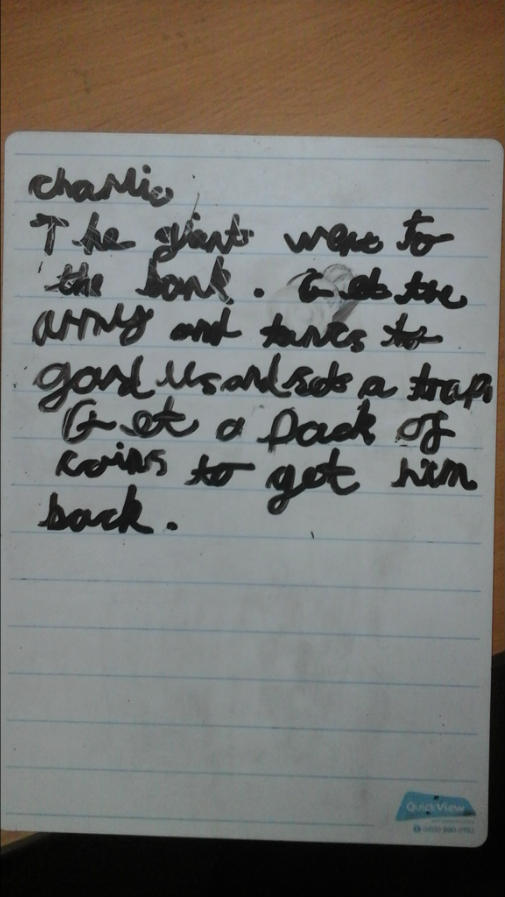 Charlie
The giant went to
the bank. Get the
army and tancs to
gard us and sets a trap.
Get a pack of
coins to get him
back.
QuickView